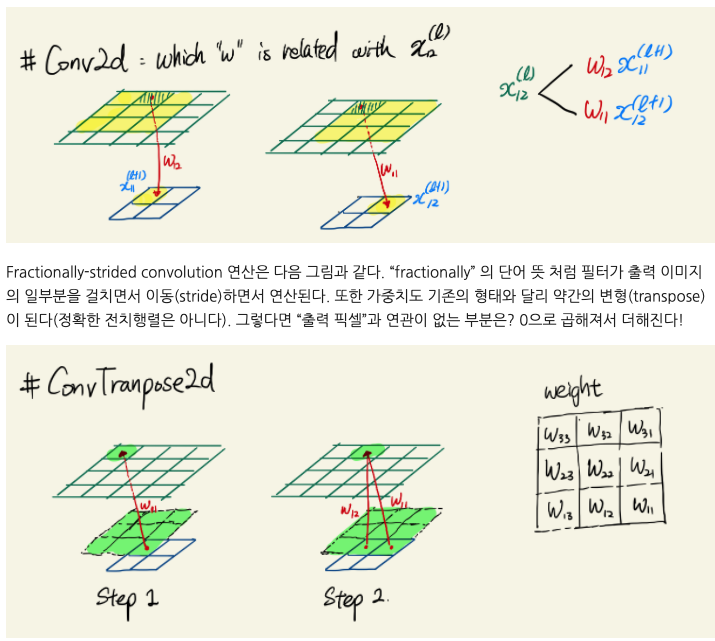 # Conv2d : which "w" is related with x₁₂⁽ˡ⁾
x₁₂⁽ˡ⁾
w₁₂ x₁₁⁽ˡ⁺¹⁾
w₁₁ x₁₂⁽ˡ⁺¹⁾
w₁₂
x₁₁⁽ˡ⁺¹⁾
w₁₁
x₁₂⁽ˡ⁺¹⁾
Fractionally-strided convolution 연산은 다음 그림과 같다. “fractionally” 의 단어 뜻 처럼 필터가 출력 이미지
의 일부분을 걸치면서 이동(stride)하면서 연산된다. 또한 가중치도 기존의 형태와 달리 약간의 변형(transpose)
이 된다(정확한 전치행렬은 아니다). 그렇다면 “출력 픽셀”과 연관이 없는 부분은? 0으로 곱해져서 더해진다!
# ConvTranpose2d
weight
w₃₃ w₃₂ w₃₁
w₂₃ w₂₂ w₂₁
w₁₃ w₁₂ w₁₁
w₁₁
Step 1
w₁₂ w₁₁
Step 2.